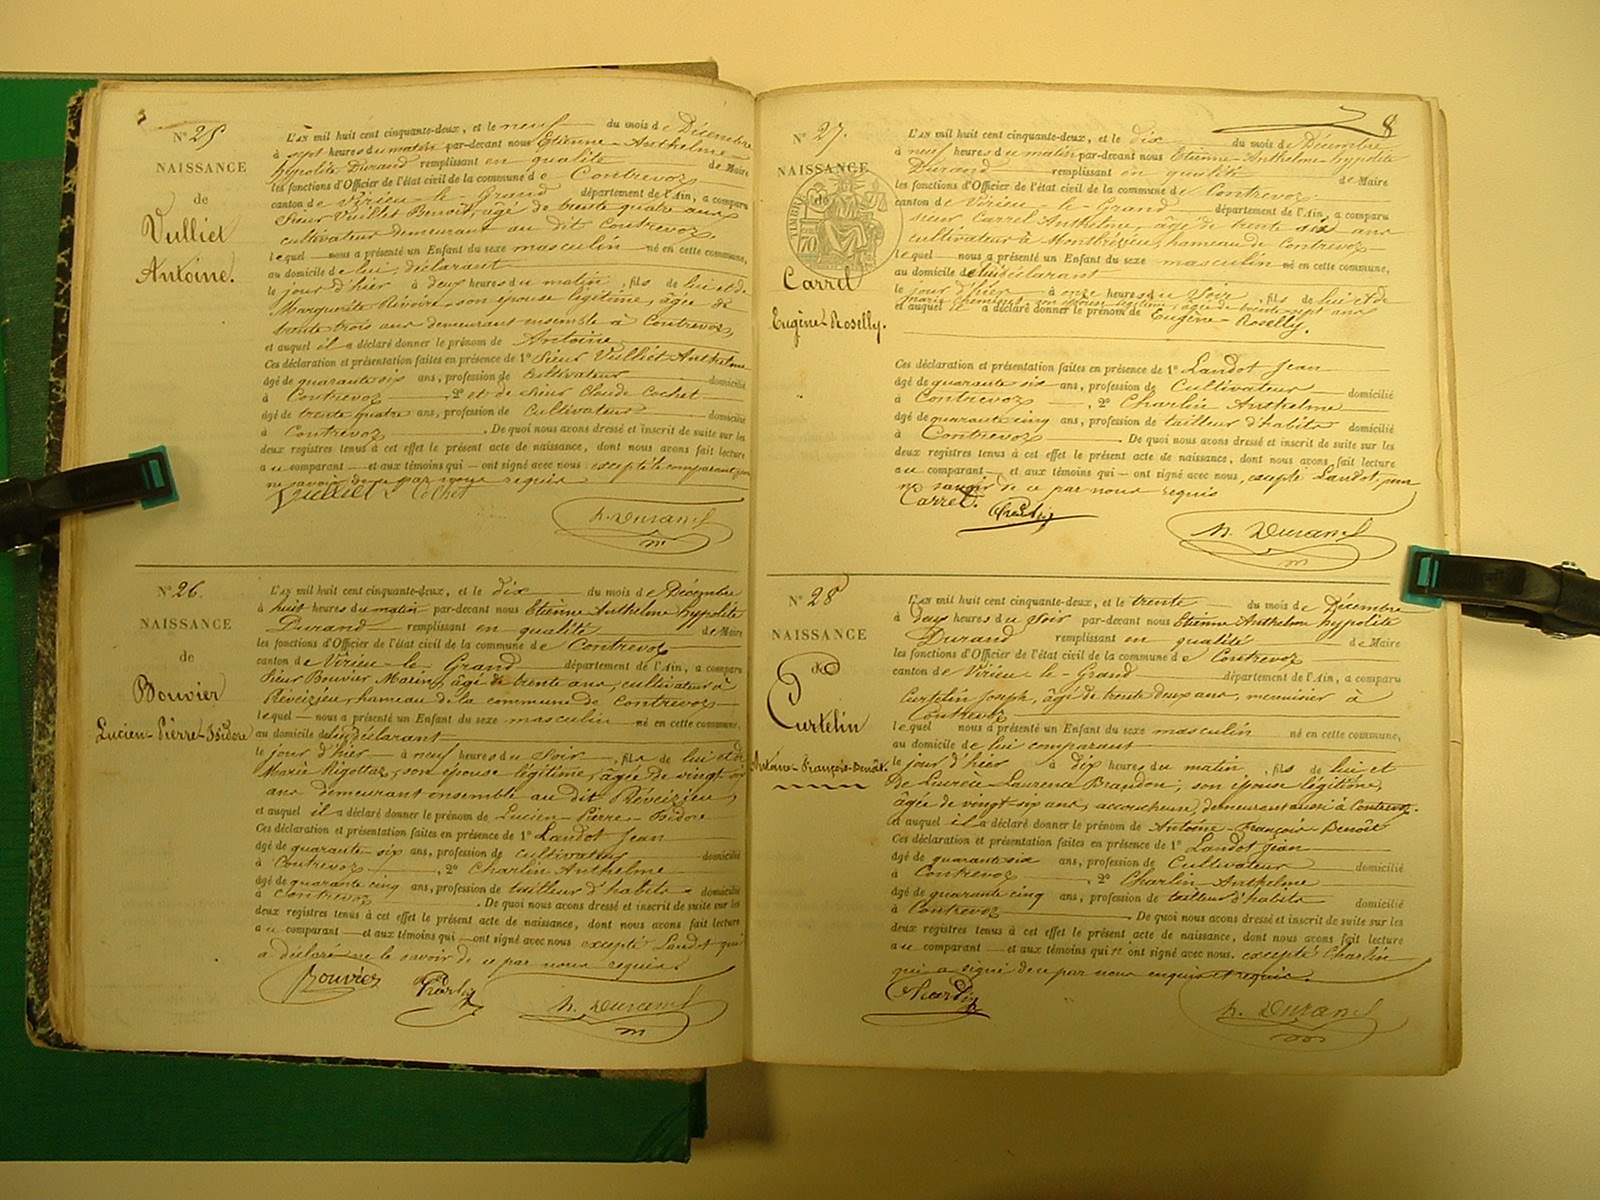 N° 25
NAISSANCE
de
Vulliet
Antoine.
L'AN mil huit cent cinquante-deux, et le neuf du mois de Décembre
à sept heures du matin par-devant nous Etienne-Anthelme-
hypolite Durand remplissant en qualité de Maire
les fonctions d'Officier de l'état civil de la commune de Contrevoz
canton de Virieu-le-Grand département de l'Ain, a comparu
Sieur Vulliet Benoit, âgé de trente quatre ans
cultivateur demeurant au dit Contrevoz.
lequel nous a présenté un Enfant du sexe masculin né en cette commune,
au domicile de lui, déclarant
le jour d'hier à deux heures du matin, fils de lui et de
Marguerite Révoire, son épouse légitime, âgée de
trente trois ans demeurant ensemble à Contrevoz,
et auquel il a déclaré donner le prénom de Antoine
Ces déclaration et présentation faites en présence de 1° Sieur Vulliet Anthelme
âgé de quarante six ans, profession de cultivateur domicilié
à Contrevoz, 2° et de Sieur Claude Cochet
âgé de trente quatre ans, profession de Cultivateur domicilié
à Contrevoz. De quoi nous avons dressé et inscrit de suite sur les
deux registres tenus à cet effet le présent acte de naissance, dont nous avons fait lecture
au comparant et aux témoins qui ont signé avec nous excepté le comparant pour
ne savoir de ce par nous requis
Vulliet Cochet
h. Durand
N° 26.
NAISSANCE
de
Bouvier
Lucien-Pierre-Isidore
L'AN mil huit cent cinquante-deux, et le dix du mois de Décembre
à huit heures du matin par-devant nous Etienne Anthelme hypolite
Durand remplissant en qualité de Maire
les fonctions d'Officier de l'état civil de la commune de Contrevoz
canton de Virieu-le-Grand département de l'Ain, a comparu
Sieur Bouvier Marin, âgé de trente ans, cultivateur à
Préveizieu, hameau de la commune de Contrevoz
lequel nous a présenté un Enfant du sexe masculin né en cette commune,
au domicile de lui déclarant
le jour d'hier à neuf heures du soir, fils de lui et de
Marie Rigottaz, son épouse légitime, âgée de vingt six
ans demeurant ensemble au dit Préveizieu,
et auquel il a déclaré donner le prénom de Lucien-Pierre-Isidore
Ces déclaration et présentation faites en présence de 1° Landot Jean
âgé de quarante-six ans, profession de cultivateur domicilié
à Contrevoz, 2° Charlin Anthelme
âgé de quarante cinq ans, profession de tailleur d'habits domicilié
à Contrevoz. De quoi nous avons dressé et inscrit de suite sur les
deux registres tenus à cet effet le présent acte de naissance, dont nous avons fait lecture
au comparant et aux témoins qui ont signé avec nous excepté Landot qui
a déclaré ne le savoir de ce par nous requis.
Bouvier Charlin h. Durand
8
N° 27.
NAISSANCE
TIMBRE
70
Carrel
Eugène-Roselly.
L'AN mil huit cent cinquante-deux, et le dix du mois de Décembre
à neuf heures du matin par-devant nous Etienne-Anthelme-hypolite
Durand remplissant en qualité de Maire
les fonctions d'Officier de l'état civil de la commune de Contrevoz
canton de Virieu-le-Grand département de l'Ain, a comparu
sieur Carrel Anthelme, âgé de trente six ans
cultivateur à Montbrézieu, hameau de Contrevoz
lequel nous a présenté un Enfant du sexe masculin né en cette commune,
au domicile de lui déclarant
le jour d'hier à onze heures du soir, fils de lui et de
Marie son épouse légitime, âgée de trente sept ans
et auquel il a déclaré donner le prénom de Eugène-Roselly.
Ces déclaration et présentation faites en présence de 1° Landot Jean
âgé de quarante six ans, profession de Cultivateur domicilié
à Contrevoz, 2° Charlin Anthelme
âgé de quarante cinq ans, profession de tailleur d'habits domicilié
à Contrevoz. De quoi nous avons dressé et inscrit de suite sur les
deux registres tenus à cet effet le présent acte de naissance, dont nous avons fait lecture
au comparant et aux témoins qui ont signé avec nous, excepté Landot, pour
ne savoir de ce par nous requis
Carrel. Charlin
h. Durand
N° 28
NAISSANCE
de
Curtelin
Antoine-François-Benoît.
L'AN mil huit cent cinquante-deux, et le trente du mois de Décembre
à Deux heures du soir par-devant nous Etienne-Anthelme hypolite
Durand remplissant en qualité de Maire
les fonctions d'Officier de l'état civil de la commune de Contrevoz
canton de Virieu-le-Grand département de l'Ain, a comparu
Curtelin Joseph, âgé de trente deux ans, menuisier à
Contrevoz
lequel nous a présenté un Enfant du sexe masculin né en cette commune,
au domicile de lui comparant
le jour d'hier à dix heures du matin, fils de lui et
De Lucrèce-Laurence Brandon, son épouse légitime,
âgée de vingt-six ans, accoucheuse, demeurant aussi à Contrevoz.
et auquel il a déclaré donner le prénom de Antoine-François-Benoît
Ces déclaration et présentation faites en présence de 1° Landot Jean
âgé de quarante six ans, profession de Cultivateur domicilié
à Contrevoz, 2° Charlin Anthelme
âgé de quarante cinq ans, profession de tailleur d'habits domicilié
à Contrevoz. De quoi nous avons dressé et inscrit de suite sur les
deux registres tenus à cet effet le présent acte de naissance, dont nous avons fait lecture
au comparant et aux témoins qui n'ont signé avec nous. excepté Charlin
qui a signé de ce par nous enquis et requis.
Charlin h. Durand